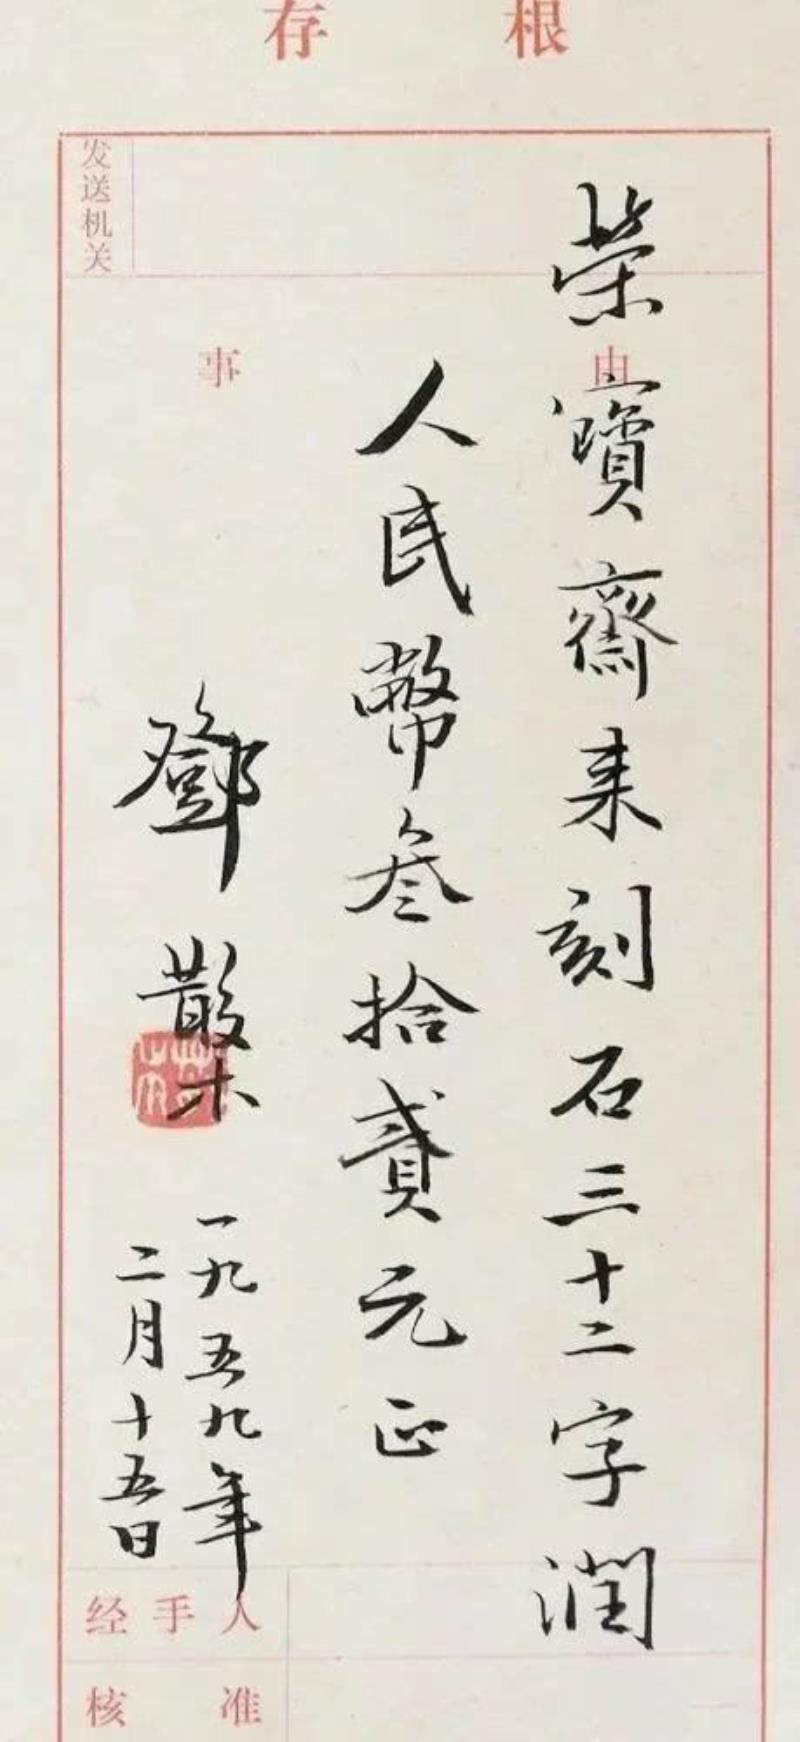 存根
发送机关
事由
榮寶齋来刻石三十二字潤
人民幣叁拾貳元正
鄧散木
一九五九年
二月十五日
经手人
核准